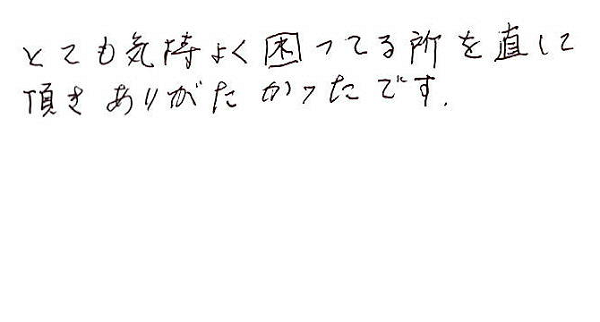 とても気持よく困ってる所を直して
頂きありがたかったです.